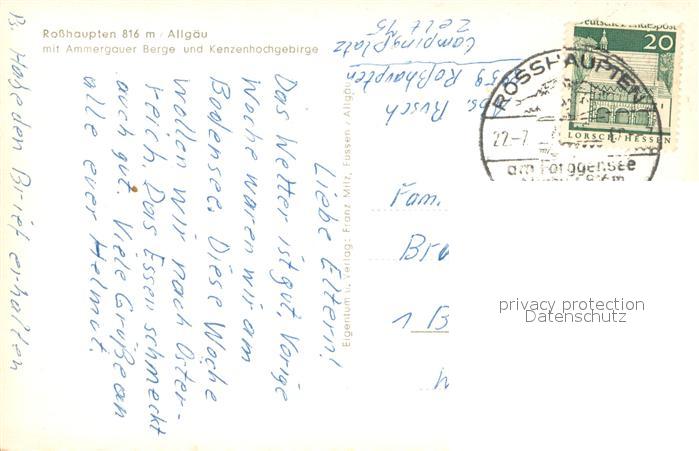 Roßhaupten 816 m / Allgäu
mit Ammergauer Berge und Kenzenhochgebirge
Liebe Eltern!
Das Wetter ist gut. Vorige
Woche waren wir am
Bodensee. Diese Woche
wollen wir nach Öster-
reich. Das Essen schmeckt
auch gut. Viele Grüße an
alle euer Helmut.
B. Habe den Brief erhalten
Eigentum u. Verlag: Franz Milz, Füssen / Allgäu
Abs. Rusch
8959 Roßhaupten
Campingplatz
Zelt 45
Deutsche Bundespost
20
LORSCH/HESSEN
ROSSHAUPTEN
22.-7.
am Forggensee
Fam.
Bro
1 B
privacy protection
Datenschutz